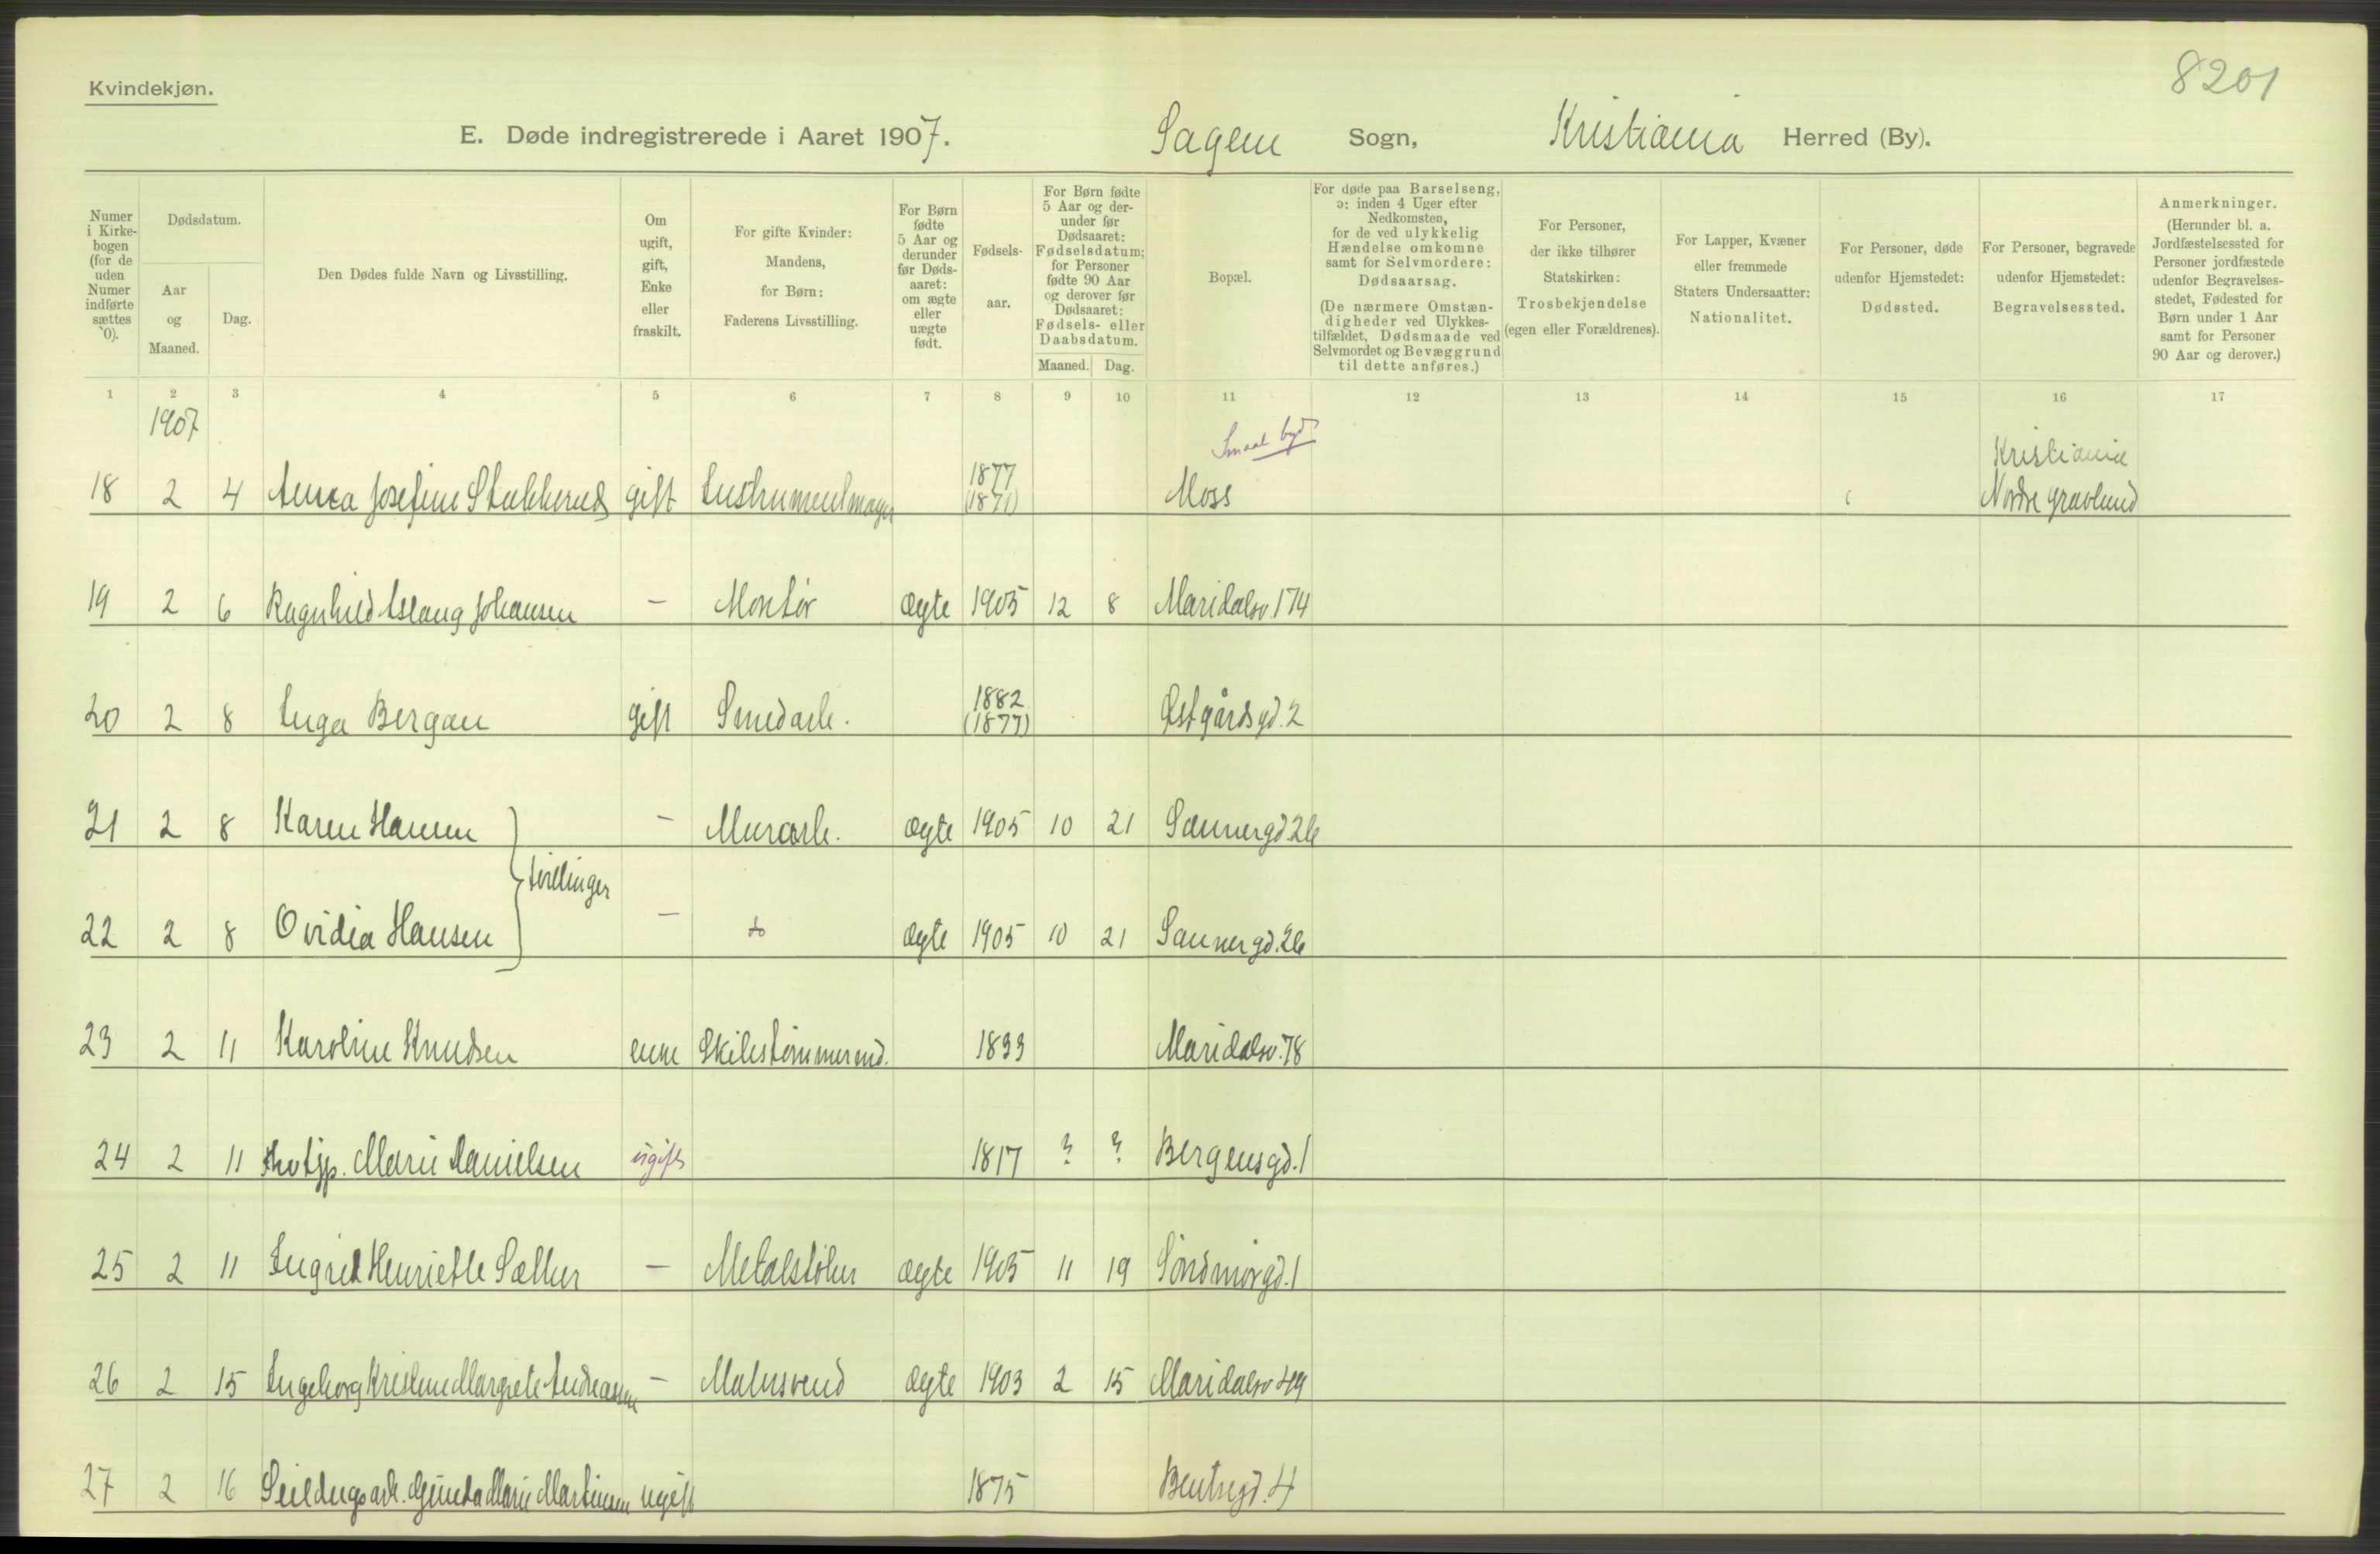 8201
Kvindekjøn.
E. Døde indregistrerede i Aaret 1907. Sagene Sogn, Kristiania Herred (By).
Numer i Kirke-bogen (for de uden Numer indførte sættes 0).
Dødsdatum.
Aar og Maaned.
Dag.
Den Dødes fulde Navn og Livsstilling.
Om ugift, gift, Enke eller fraskilt.
For gifte Kvinder: Mandens, for Børn: Faderens Livsstilling.
For Børn fødte 5 Aar og derunder før Døds-aaret: om ægte eller uægte født.
Fødsels-aar.
For Børn fødte 5 Aar og der-under før Dødsaaret: Fødselsdatum; for Personer fødte 90 Aar og derover før Dødsaaret: Fødsels- eller Daabsdatum.
Maaned. Dag.
Bopæl.
For døde paa Barselseng, ɔ: inden 4 Uger efter Nedkomsten, for de ved ulykkelig Hændelse omkomne samt for Selvmordere: Dødsaarsag.
(De nærmere Omstæn-digheder ved Ulykkes-tilfældet, Dødsmaade ved Selvmordet og Bevæggrund til dette anføres.)
For Personer, der ikke tilhører Statskirken: Trosbekjendelse (egen eller Forældrenes).
For Lapper, Kvæner eller fremmede Staters Undersaatter: Nationalitet.
For Personer, døde udenfor Hjemstedet: Dødssted.
For Personer, begravede udenfor Hjemstedet: Begravelsessted.
Anmerkninger. (Herunder bl. a. Jordfæstelsessted for Personer jordfæstede udenfor Begravelses-stedet, Fødested for Børn under 1 Aar samt for Personer 90 Aar og derover.)
1 2 3 4 5 6 7 8 9 10 11 12 13 14 15 16 17
1907
18 2 4 Anna Josefine Stubberud gift Instrumentmager 1877 (1871) Moss Kristiania Nordre gravlund
19 2 6 Ragnhild Aslaug Johansen – Montør ægte 1905 12 8 Maridalsv. 174
20 2 8 Inga Bergan gift Smedarb. 1882 (1877) Østgårdsgd. 2
21 2 8 Karen Hansen – Murarb. ægte 1905 10 21 Sannergd. 26
tvillinger
22 2 8 Ovidia Hansen – do ægte 1905 10 21 Sannergd. 26
23 2 11 Karoline Knudsen enke Skibstømmermd. 1833 Maridalsv. 78
24 2 11 Marie Danielsen ugift 1817 ? ? Bergensgd. 1
25 2 11 Ingrid Henriette Sæther – Metalstøber ægte 1905 11 19 Søndmørgd. 1
26 2 15 Ingeborg Kristine Margrete Andreassen – Malersvend ægte 1903 2 15 Maridalsv. 49
27 2 16 Seildugsarb. Gunda Marie Martinsen ugift 1875 Bentsegd. 4